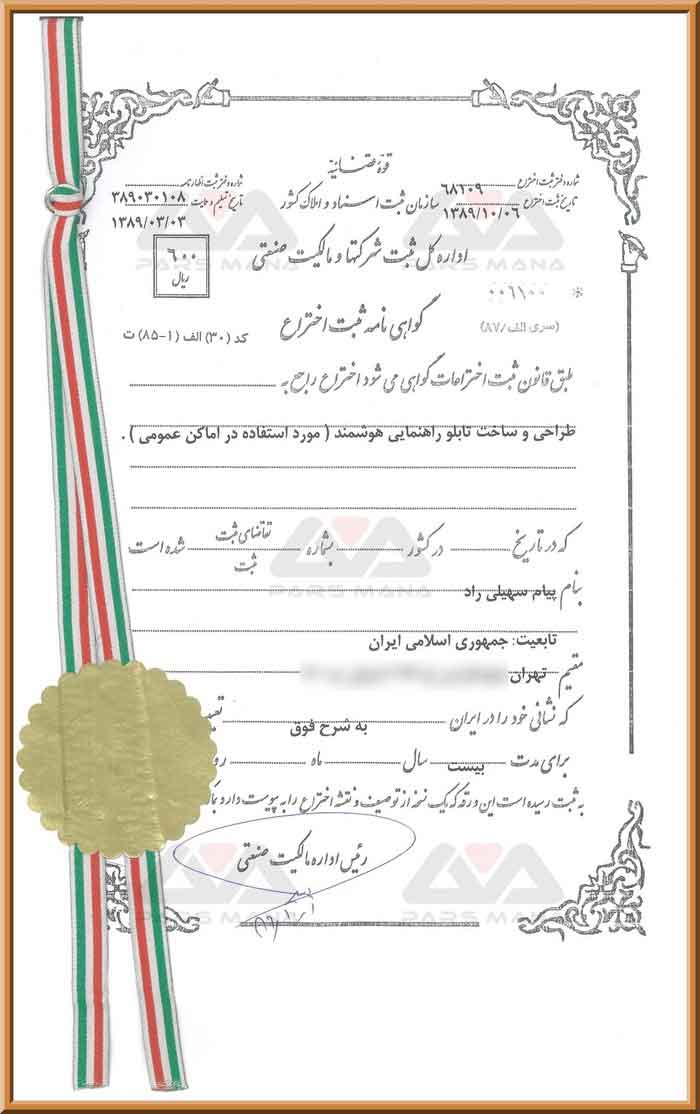 قوه قضائیه
شماره دفتر ثبت اختراع ۶۸۱۰۹
شماره دفتر ثبت اظهارنامه ۳۸۹۰۳۰۱۰۸
سازمان ثبت اسناد و املاک کشور
تاریخ ثبت اختراع ۱۳۸۹/۱۰/۰۶
تاریخ تسلیم ۱۳۸۹/۰۳/۰۳
اداره کل ثبت شرکتها و مالکیت صنعتی
۶۰۰
ریال
PARS MANA
PARS MANA
* ۰۰۶۱۰۰
(سری الف/۸۷)
گواهی نامه ثبت اختراع
کد (۳۰) الف (۱-۸۵) ت
طبق قانون ثبت اختراعات گواهی می شود اختراع راجع به
طراحی و ساخت تابلو راهنمایی هوشمند ( مورد استفاده در اماکن عمومی ) .
که در تاریخ در کشور بشماره تقاضای ثبت شده است
ثبت
PARS MANA
بنام پیام سهیلی راد
تابعیت: جمهوری اسلامی ایران
مقیم تهران
که نشانی خود را در ایران به شرح فوق
برای مدت بیست سال ماه
به ثبت رسیده است این ورقه که یک نسخه از توصیف و نقشه اختراع را به پیوست دارد
رئیس اداره مالکیت صنعتی
PARS MANA
PARS MANA